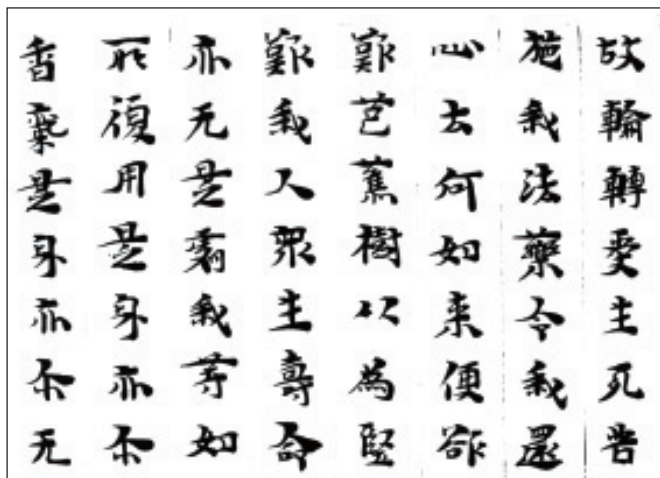 故輪轉受生死苦
施我法藥令我還
心去何如来便欲
歎芭蕉樹以為堅
歎我人眾生壽命
亦无是處我等如
所復用是身亦尒
香氣是身亦尒无